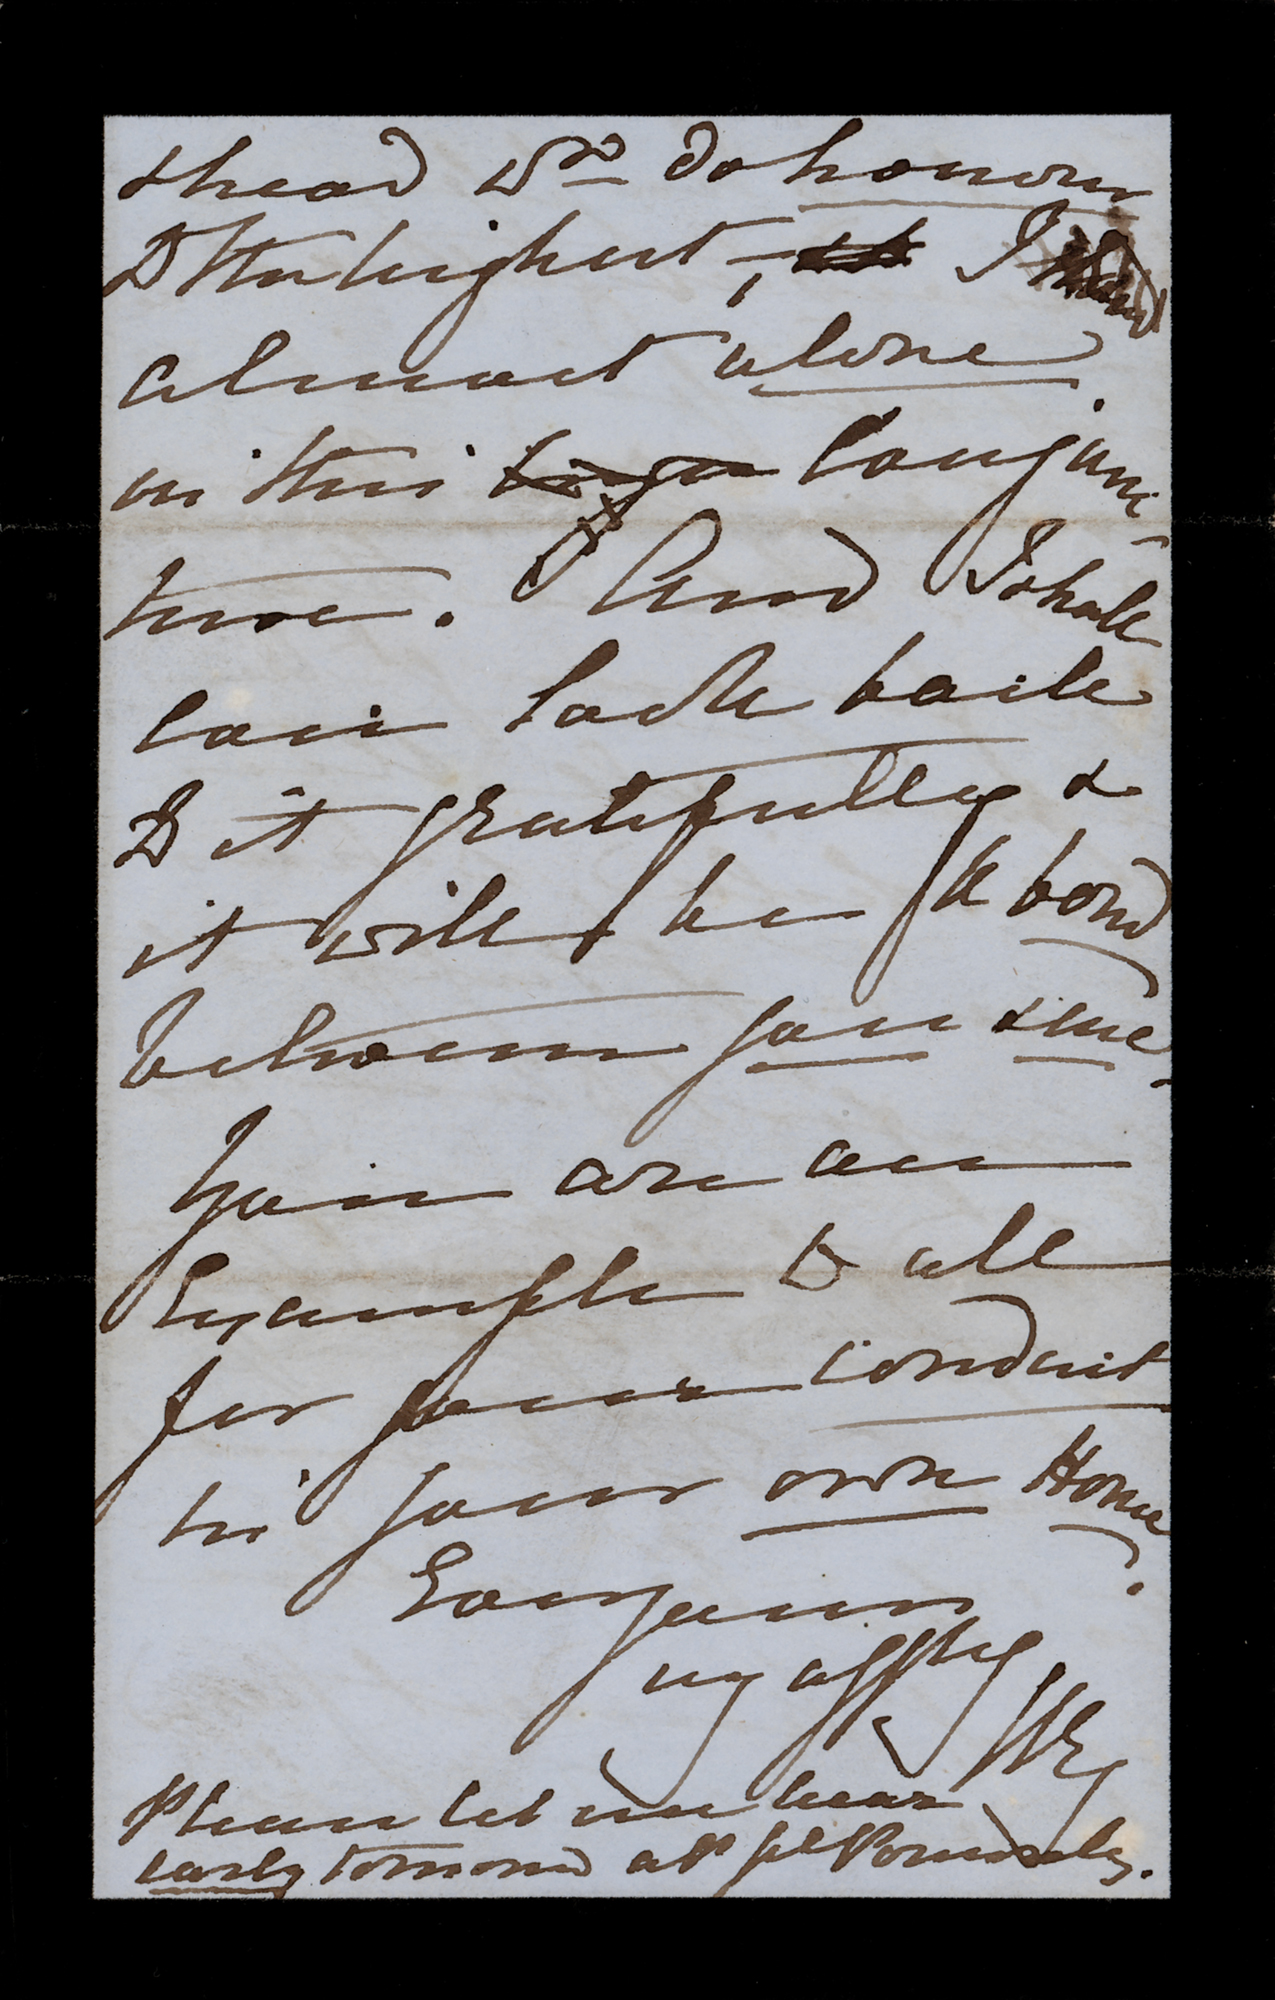 & head wd do honour
to the highest,
I stand
almost alone
in this conjunc
ture. And I shall
look back
to it gratefully &
it will be a bond
between you & me.
You are an
Example to all
for your conduct
in your own Home.
Ever yours
my affly
Please let me hear
early tomorrow at